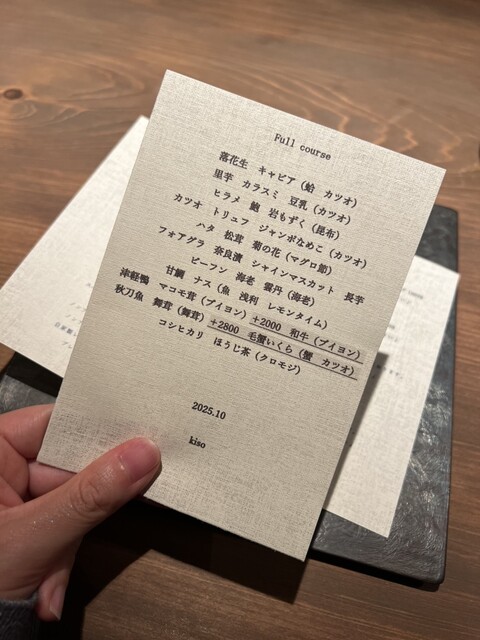 Full course
落花生　キャビア（蛤　カツオ）
里芋　カラスミ　豆乳（カツオ）
ヒラメ　鮑　岩もずく（昆布）
カツオ　トリュフ　ジャンボなめこ（カツオ）
ハタ　松茸　菊の花（マグロ節）
フォアグラ　奈良漬　シャインマスカット　長芋
ビーフン　海老　雲丹（海老）
甘鯛　ナス（魚　浅利　レモンタイム）
津軽鴨　マコモ茸（ブイヨン）+2000　和牛（ブイヨン）
秋刀魚　舞茸（舞茸）+2800　毛蟹いくら（蟹　カツオ）
コシヒカリ　ほうじ茶（クロモジ）
2025.10
kiso